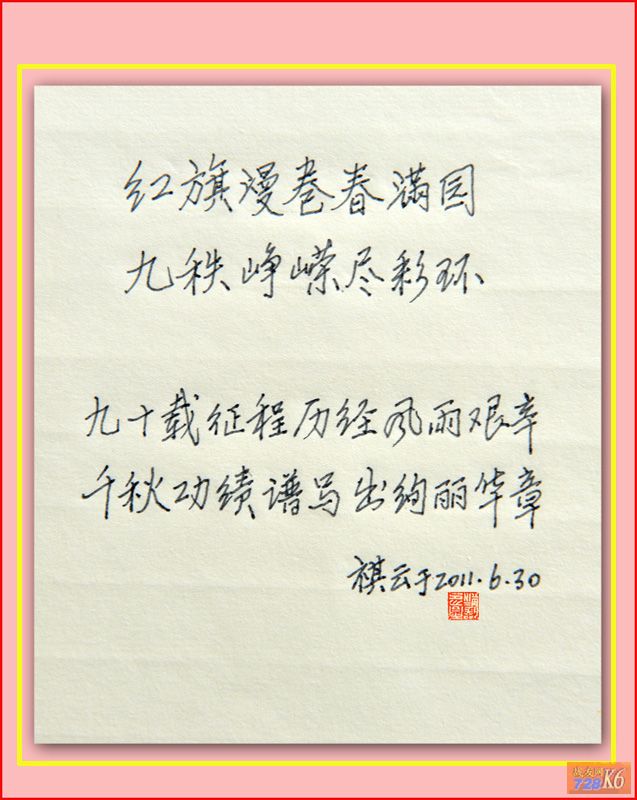 红旗漫卷春满园
九秩峥嵘尽彩环
九十载征程历经风雨艰辛
千秋功绩谱写出绚丽华章
祺云于2011.6.30
战友网
728K6